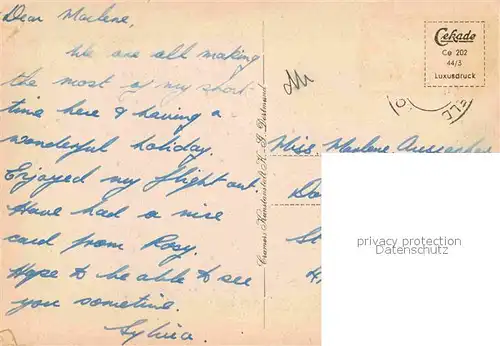 Dear Marlene,
We are all making
the most of my short
time here & having a
wonderful holiday.
Enjoyed my flight out.
Have had a nice
card from Rosy.
Hope to be able to see
you sometime.
Sylvia.
Cramers Kunstanstalt K.-G. Dortmund
Cekade
Ce 202
44/3
Luxusdruck
Miss. Marlene
privacy protection